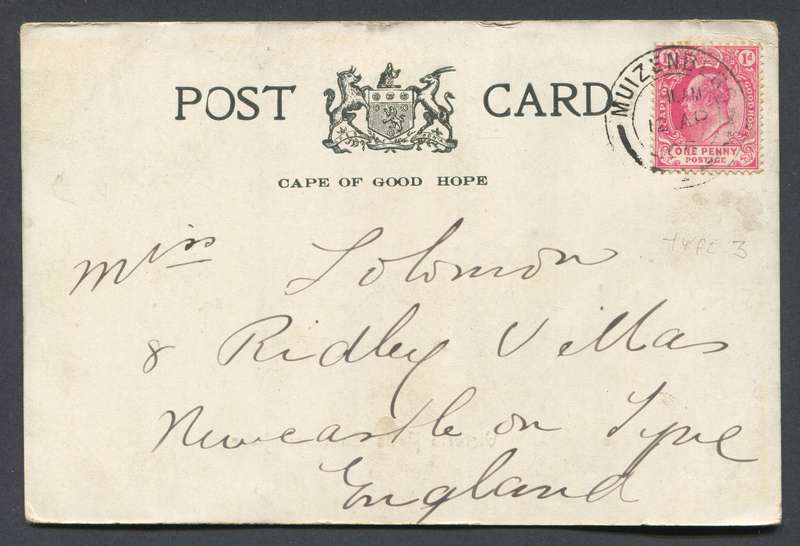 POST CARD
CAPE OF GOOD HOPE
MUIZENB
1d
ONE PENNY
POSTAGE
TYPE 3
Miss Solomon
8 Ridley Villas
Newcastle on Tyne
England